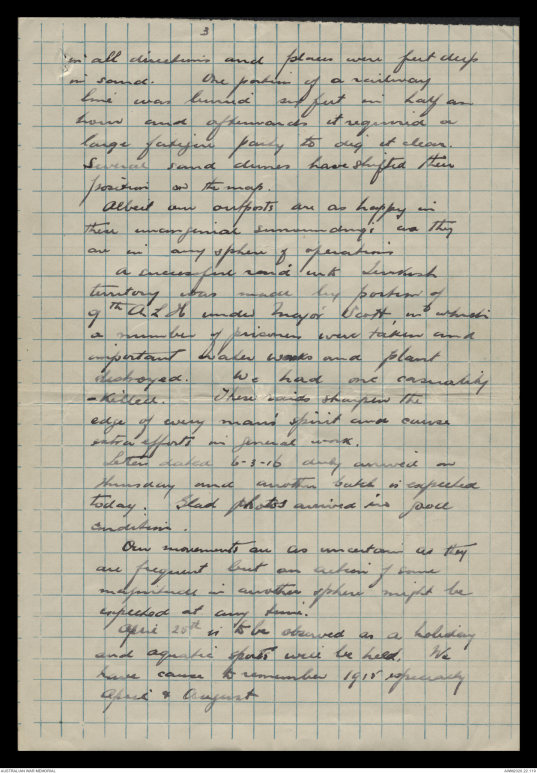 3
in all directions and places were feet deep
in sand. One portion of a railway
line was buried six feet in half an
hour and afterwards it required a
large fatigue party to dig it clear.
Several sand dunes have shifted their
position on the map.
Albeit our outposts are as happy in
their uncongenial surroundings as they
are in any sphere of operations
A successful raid into Turkish
territory was made by portion of
9th A.L.H under Major Scott, in which
a number of prisoners were taken and
important water works and plant
destroyed. We had one casuality
- killed. These raids sharpen the
edge of every man's spirit and cause
extra efforts in general work.
Letter dated 6-3-16 duly arrived on
Thursday and another batch is expected
today. Glad photos arrived in good
condition.
Our movements are as uncertain as they
are frequent but an action of some
magnitude in another sphere might be
expected at any time.
April 25th is to be observed as a holiday
and aquatic sports will be held. We
have cause to remember 1915 especially
April & August
AUSTRALIAN WAR MEMORIAL